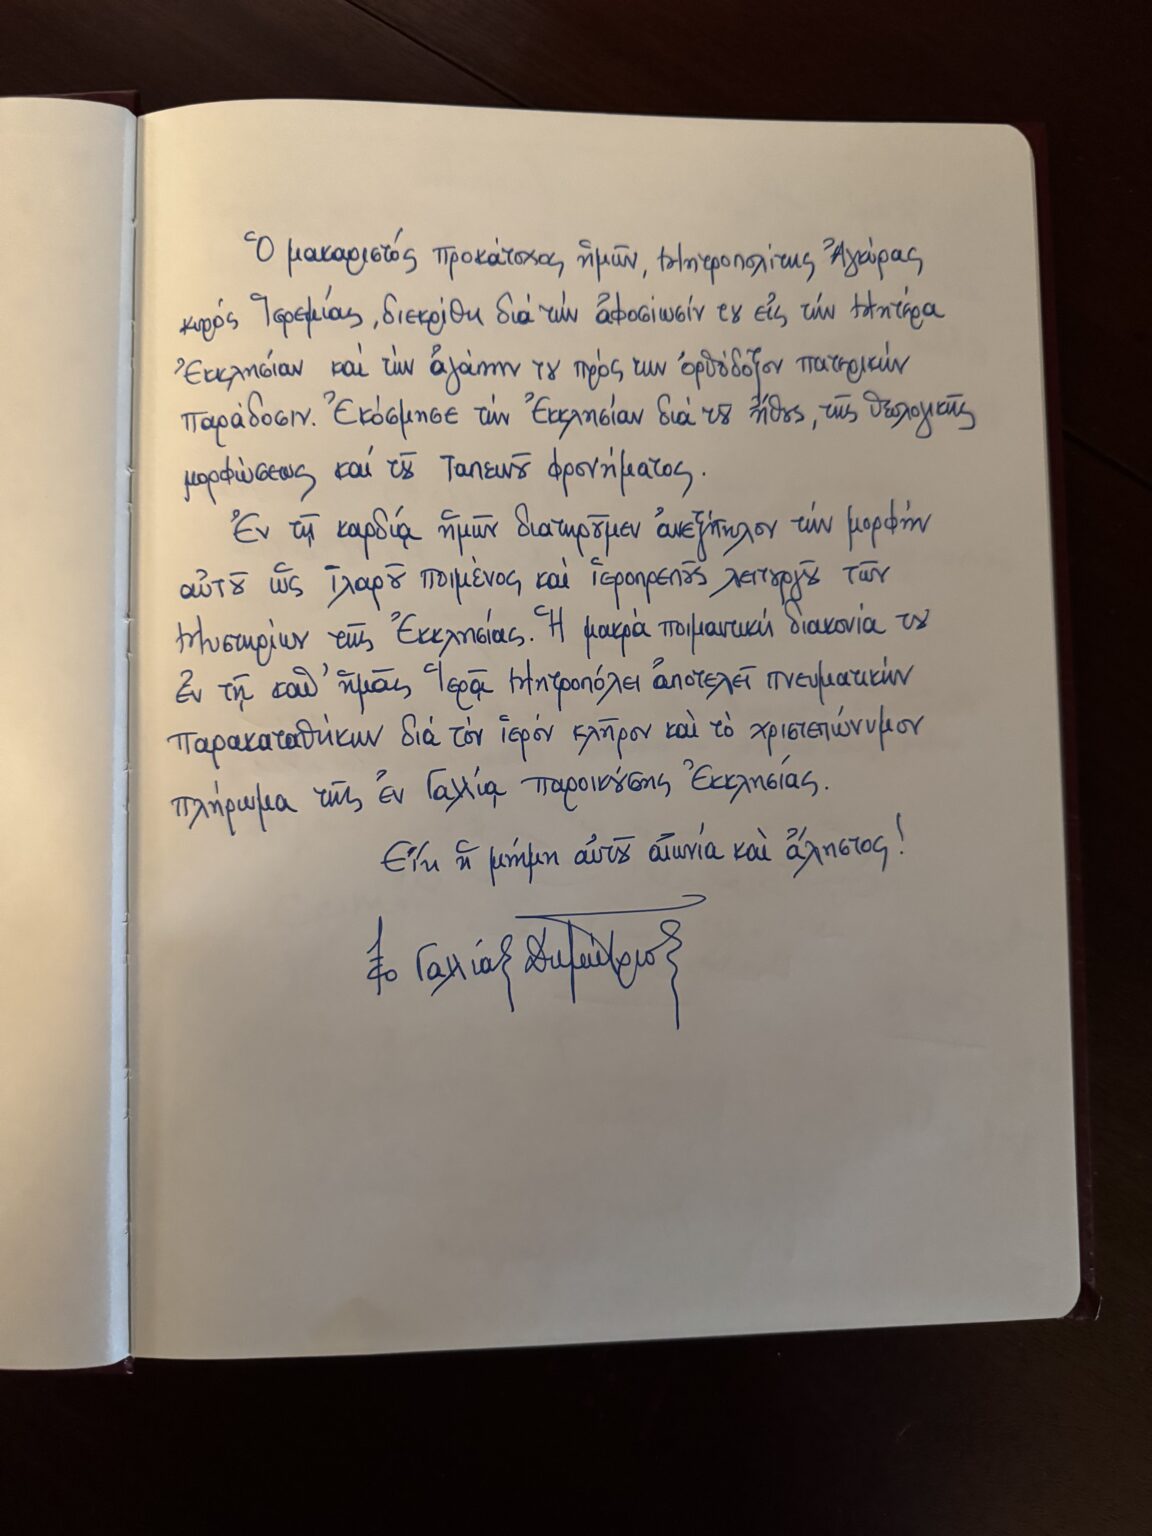 Ὁ μακαριστός προκάτοχος ἡμῶν, Μητροπολίτης Ἀγκύρας
κυρός Ἱερεμίας, διεκρίθη διά τήν ἀφοσίωσίν του εἰς τήν Μητέρα
Ἐκκλησίαν καί τήν ἀγάπην του πρός την ὀρθόδοξον πατερικήν
παράδοσιν. Ἐκόσμησε τήν Ἐκκλησίαν διά τοῦ ἤθους, τῆς θεολογικῆς
μορφώσεως καί τοῦ ταπεινοῦ φρονήματος.
Ἐν τῇ καρδίᾳ ἡμῶν διατηροῦμεν ἀνεξίτηλον τήν μορφήν
αὐτοῦ ὡς ἱλαροῦ ποιμένος καί ἱεροπρεποῦς λειτουργοῦ τῶν
Μυστηρίων τῆς Ἐκκλησίας. Ἡ μακρά ποιμαντική διακονία του
ἐν τῇ καθ' ἡμᾶς Ἱερᾷ Μητροπόλει ἀποτελεῖ πνευματικήν
παρακαταθήκην διά τόν ἱερόν κλῆρον καὶ τὸ χριστεπώνυμον
πλήρωμα τῆς ἐν Γαλλίᾳ παροικούσης Ἐκκλησίας.
Εἴη ἡ μνήμη αὐτοῦ αἰωνία καὶ ἄληστος!
† ὁ Γαλλίας Δημήτριος